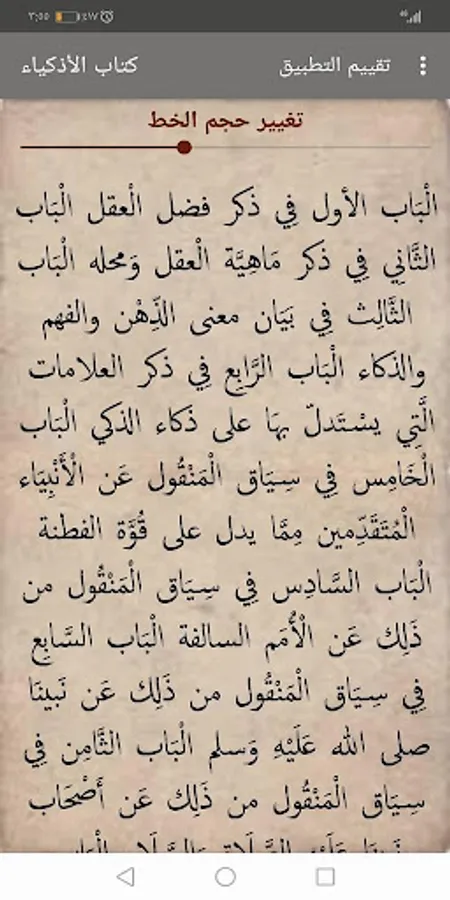 ٣:٥٥ ٤٧٪
كتاب الأذكياء
تقييم التطبيق
تغيير حجم الخط
الْبَاب الأول فِي ذكر فضل الْعقل الْبَاب
الثَّانِي فِي ذكر مَاهِيَّة الْعقل وَمحله الْبَاب
الثَّالِث فِي بَيَان معنى الذِّهْن والفهم
والذكاء الْبَاب الرَّابِع فِي ذكر العلامات
الَّتِي يسْتَدلّ بهَا على ذكاء الذكي الْبَاب
الْخَامِس فِي سِيَاق الْمَنْقُول عَن الْأَنْبِيَاء
الْمُتَقَدِّمين مِمَّا يدل على قُوَّة الفطنة
الْبَاب السَّادِس فِي سِيَاق الْمَنْقُول من
ذَلِك عَن الْأُمَم السالفة الْبَاب السَّابِع
فِي سِيَاق الْمَنْقُول من ذَلِك عَن نَبينَا
صلى الله عَلَيْهِ وَسلم الْبَاب الثَّامِن فِي
سِيَاق الْمَنْقُول من ذَلِك عَن أَصْحَاب